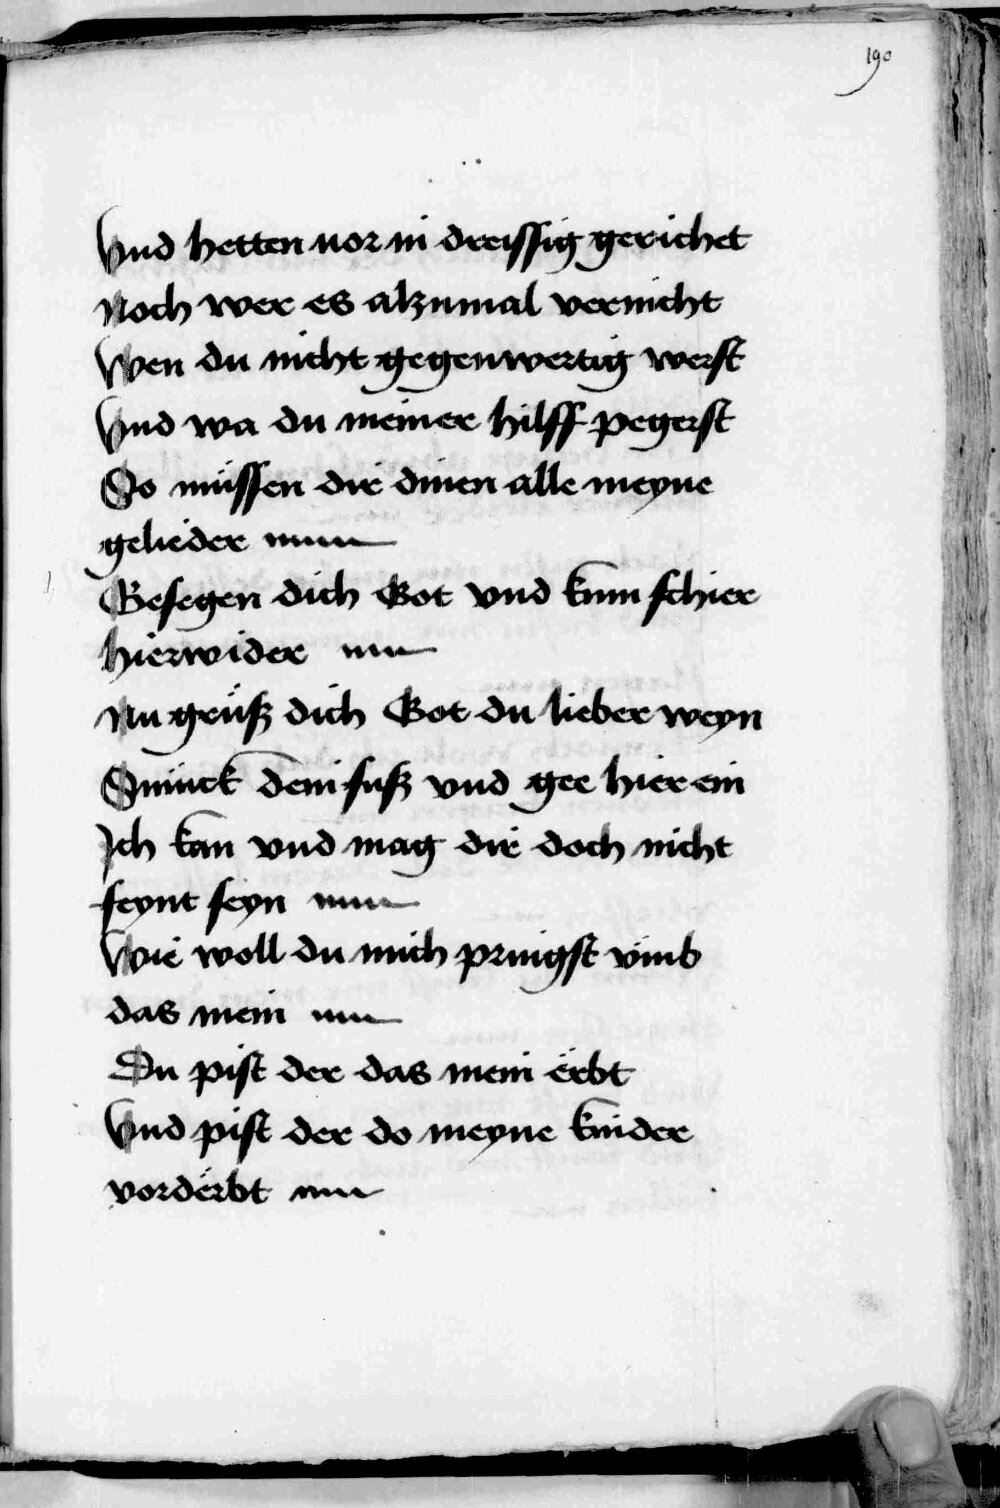 190
Vnd hetten uor in dreissig gerichet
Noch wer es alzumal vernicht
Wen du nicht gegenwertig werst
Vnd wa du meiner hilff pegerst
So müssen dir dinen alle meyne
gelieder
Gesegen dich Got vnd kum schier
hierwider
Nu grüß dich Got du lieber weyn
Smück dein fuß vnd gee hier ein
Ich kan vnd mag dir doch nicht
feynt seyn
Wie woll du mich pringst vmb
das mein
Du pist der das mein erbt
Vnd pist der do meyne kinder
vorderbt